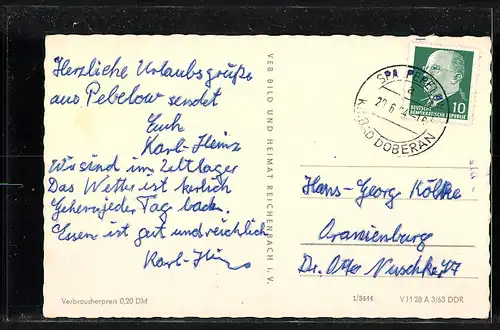 Herzliche Urlaubsgrüße
aus Pebelow sendet
Euch
Karl-Heinz
Wir sind im Zeltlager
Das Wetter ist herlich
Gehen jeder Tag baden.
Essen ist gut und reichlich
Karl-Heinz
VEB BILD UND HEIMAT REICHENBACH I. V.
SPA
KR. BAD DOBERAN
10
DEUTSCHE
DEMOKRATISCHE REPUBLIK
Hans-Georg
Oranienburg
Dr. Otto Nuschke
Verbraucherpreis 0,20 DM
1/3444
V 11 28 A 3/63 DDR